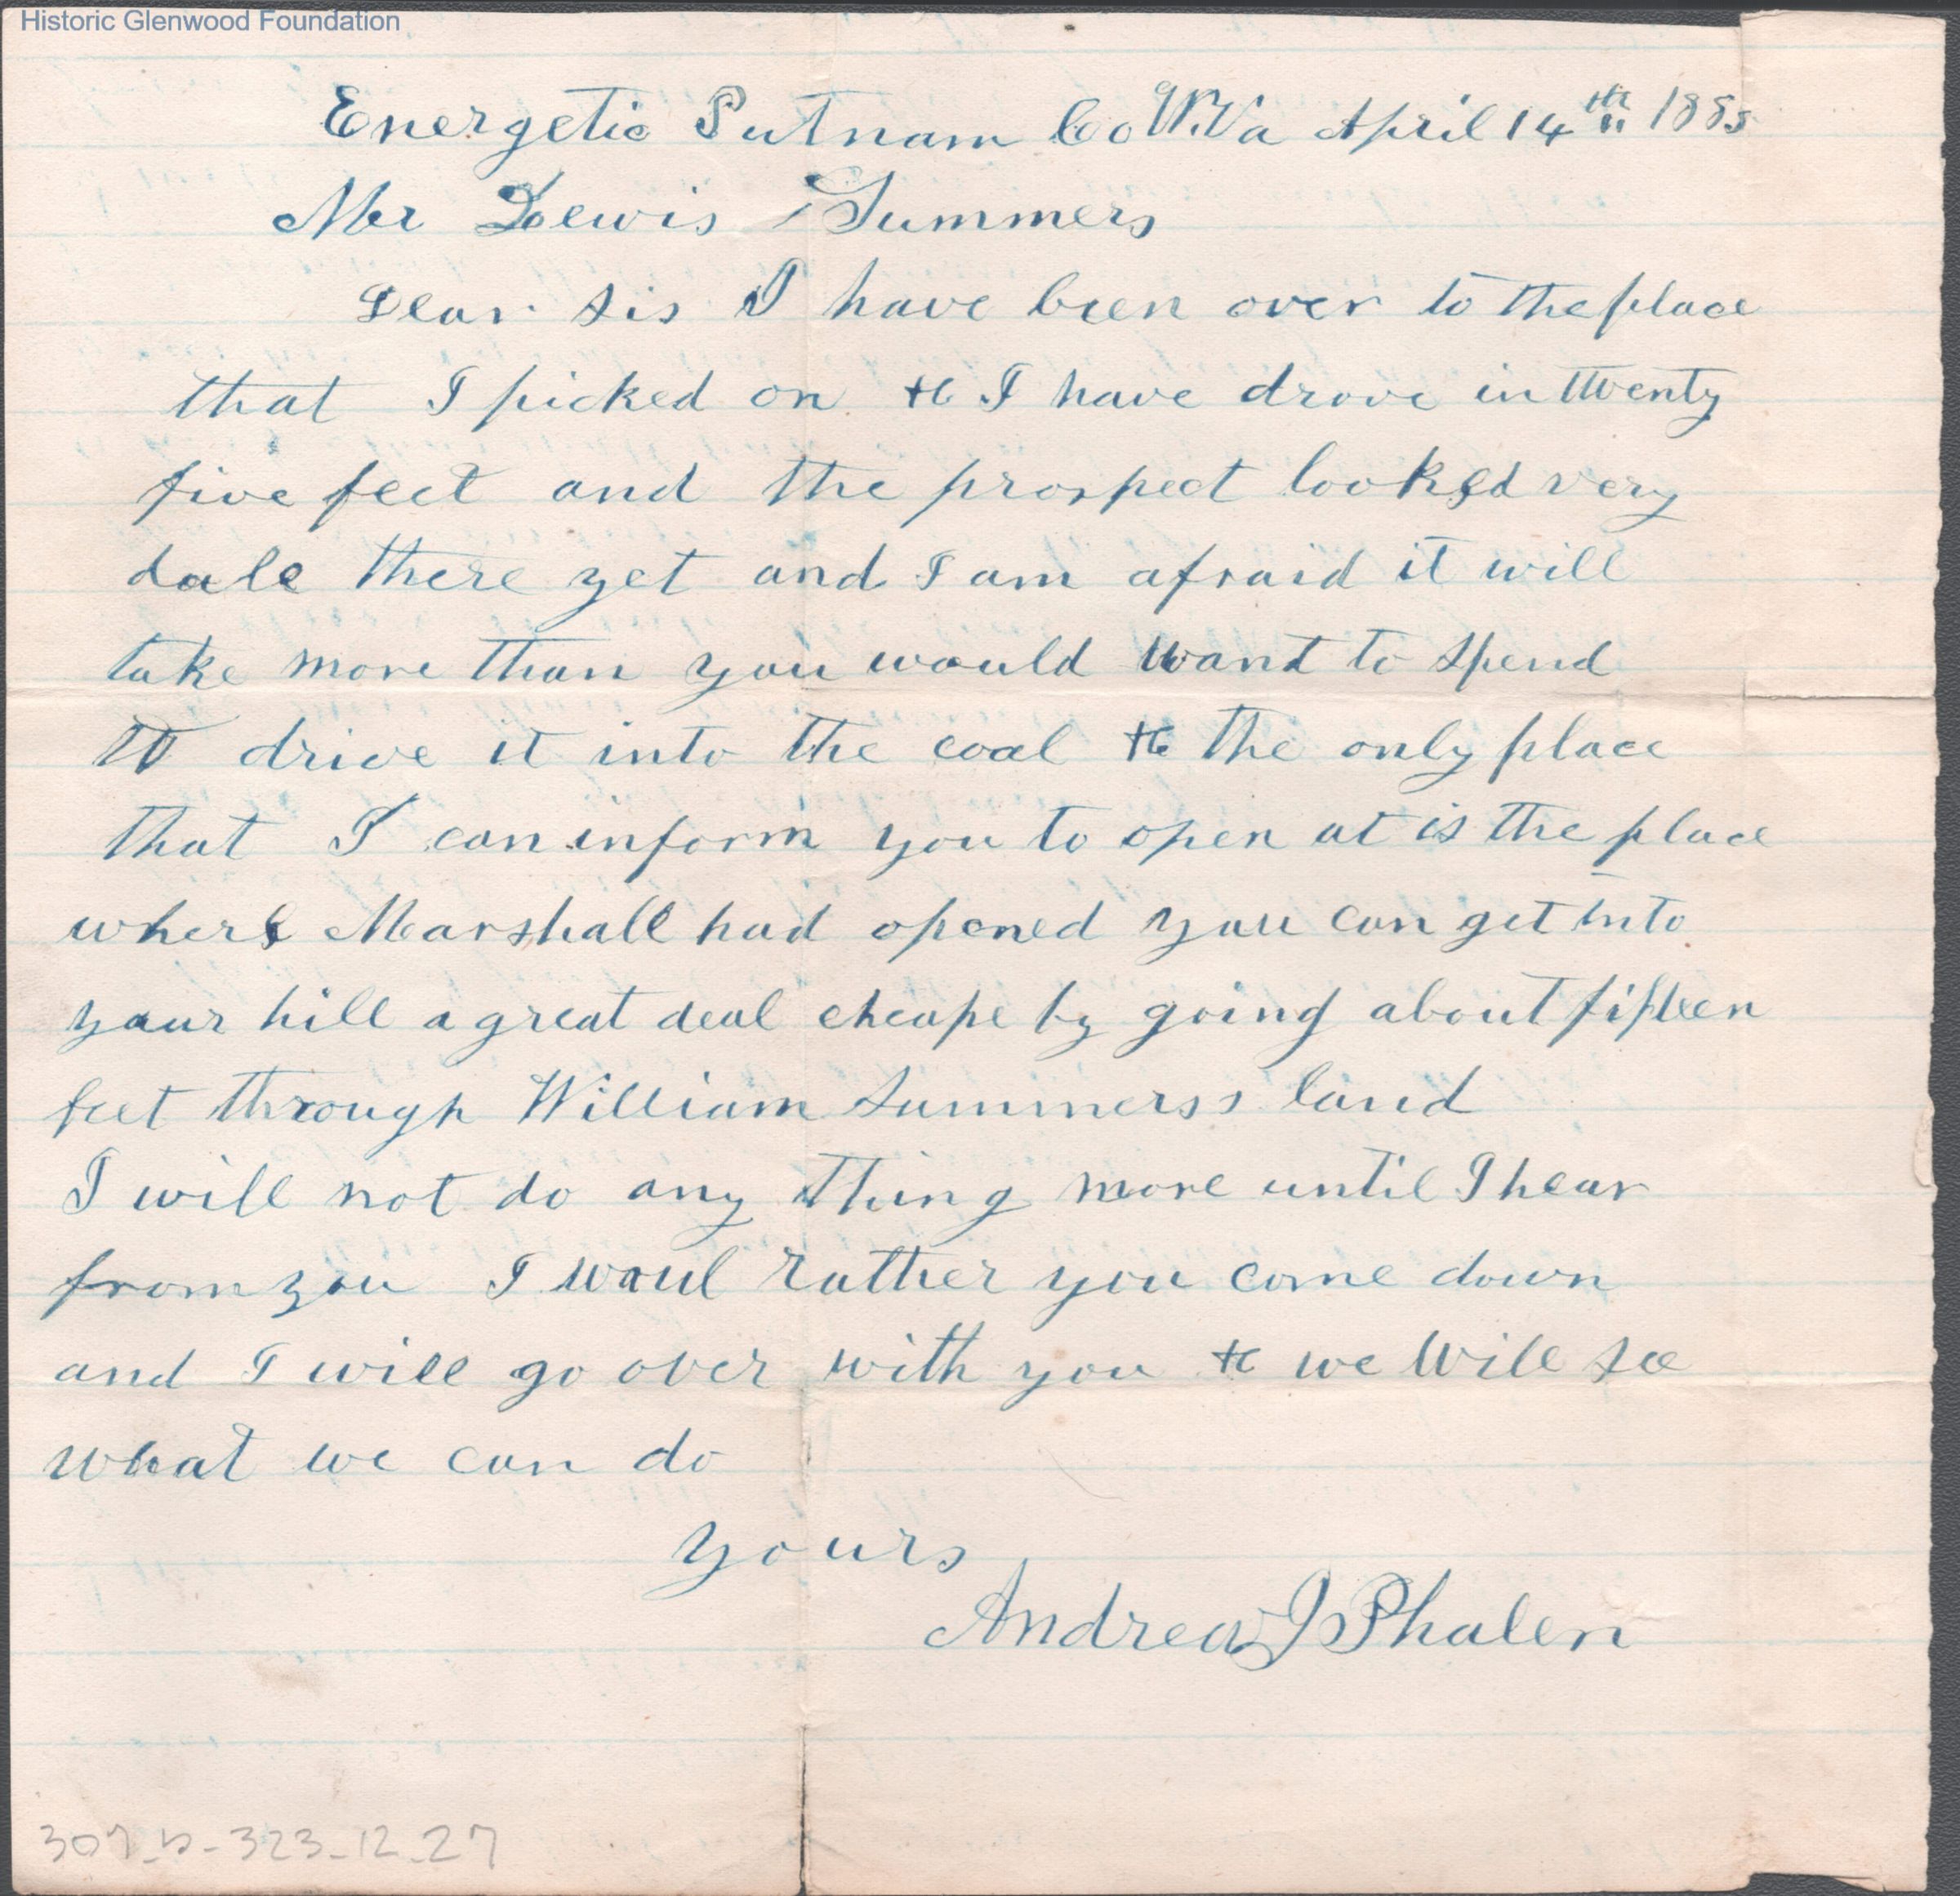 Historic Glenwood Foundation
Energetic Putnam Co W.Va April 14th 1885
Mr Lewis Summers
Dear Sis I have been over to the place
that I picked on & I have drove in twenty
five feet and the prospect looked very
dale there yet and I am afraid it will
take more than you would want to spend
to drive it into the coal & the only place
that I can inform you to open at is the place
where Marshall had opened you can get into
your hill a great deal cheape by going about fifteen
feet through William Summerss land
I will not do any thing more until I hear
from you I woul rather you come down
and I will go over with you & we will see
what we can do
yours
Andrew J Phalen
307-b-323-12-27